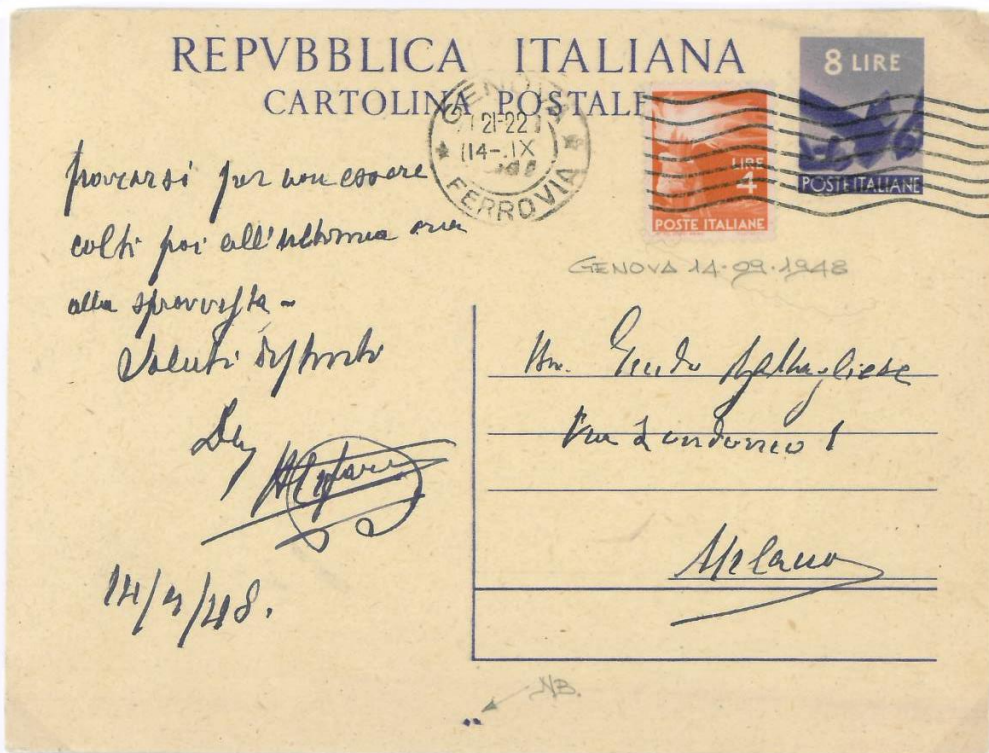 REPVBBLICA ITALIANA
CARTOLINA POSTALE
8 LIRE
POSTE ITALIANE
LIRE
4
POSTE ITALIANE
GENOVA
21-22
14-.IX
FERROVIA
GENOVA 14-09-1948
per non essere
colti poi all'ultima ora
alla sprovvista -
Saluti distinti
14/9/48.
Guido
Via
1
Milano
NB.